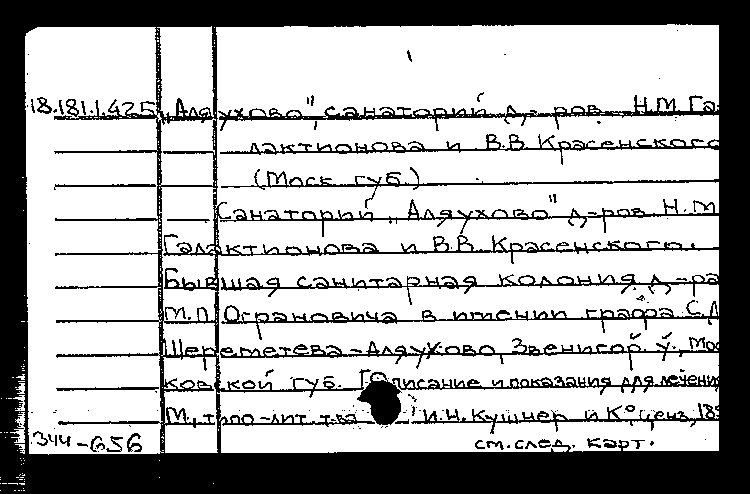 18.181.1.425 „Аляухово", санаторий д-ров Н.М. Га-
лактионова и В.В. Красенского
(Моск. губ.)
Санаторий „Аляухово" д-ров Н.М.
Галактионова и В.В. Красенского.
Бывшая санитарная колония д-ра
М.П. Ограновича в имении графа С.Д.
Шереметева - Аляухово, Звенигор. у., Мос-
ковской губ. [Описание и показания для лечени
М., типо-лит. т-ва И.Н. Кушнер и К° ценз. 18
344-656 см. след. карт.